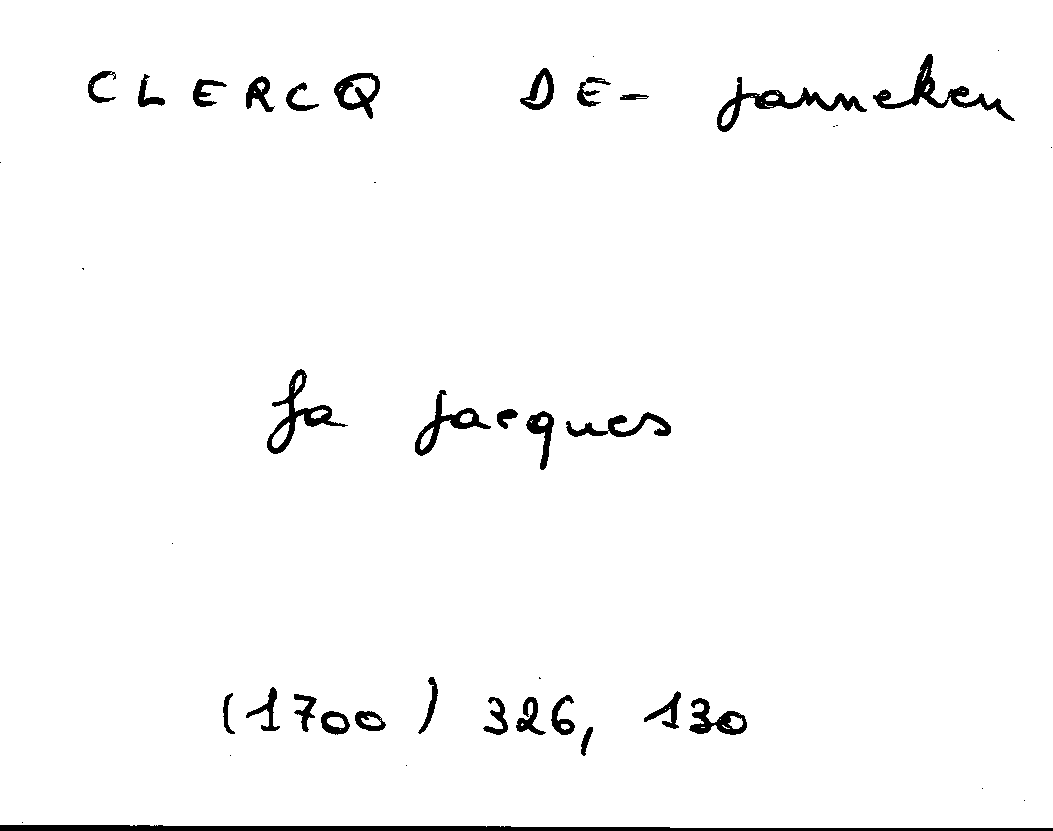 CLERCQ DE- Janneken
fa Jacques
(1700) 326, 130